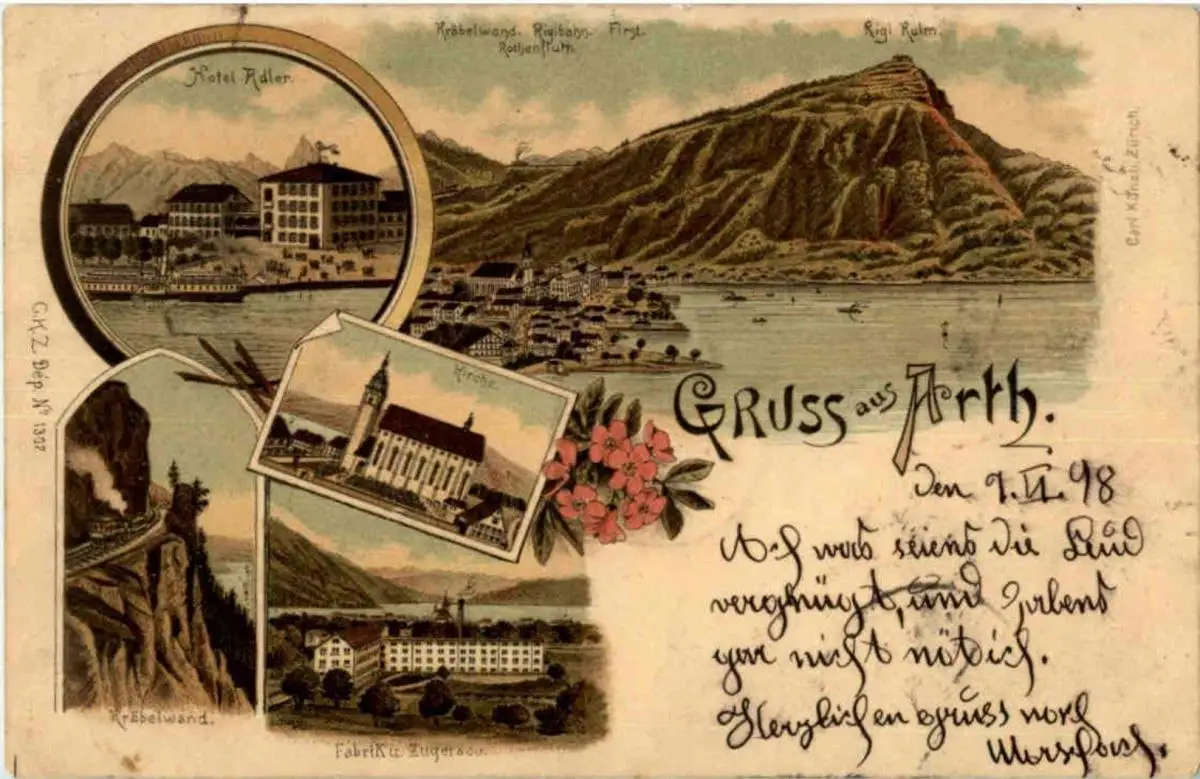 Kräbelwand. Rigibahn. First.
Rothenfluth.
Rigi Kulm.
Hotel Adler.
Carl Künzli, Zürich.
C.K.Z. Dép. No 1307
Kirche.
GRUSS aus Arth.
den 9. VI. 98
Ach was seiens die Leüd
vergnügt, und habens
gar nicht nötich.
Herzlichen gruss nach
Morschach.
Kräbelwand.
Fabrik u. Zugersee.